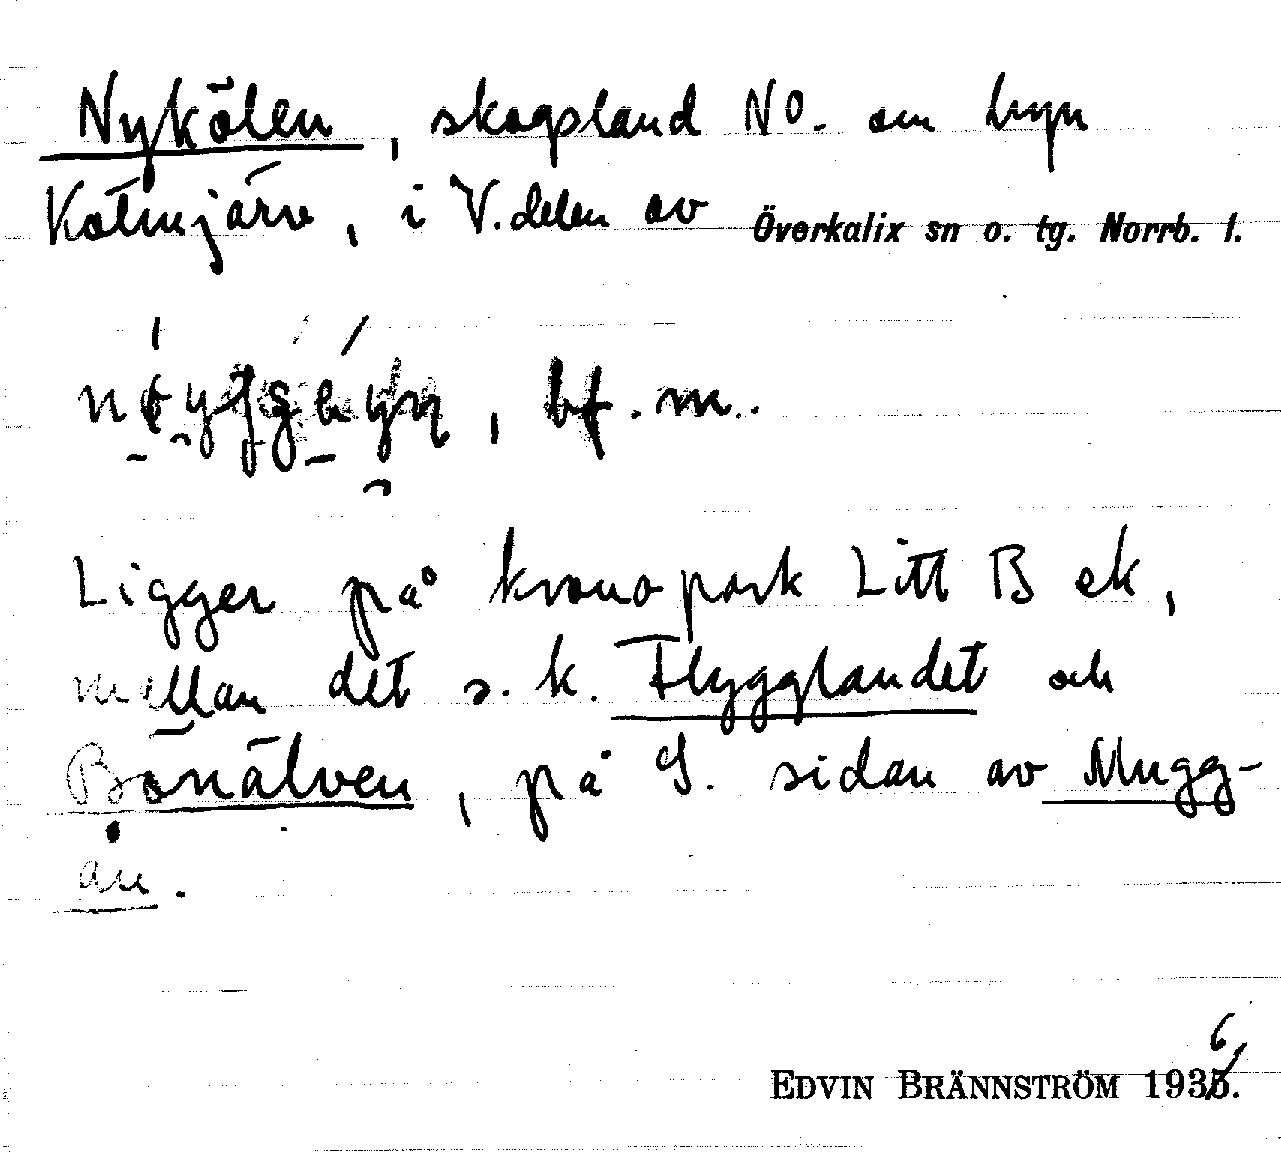 Nykölen, skogsland NO. om byn
Kölmjärv, i V.delen av Överkalix sn o. tg. Norrb. l.
, bf. m..
Ligger på kronopark Litt B ek,
mellan det s.k. Flygglandet och
Bönälven, på S. sidan av Mugg-
ån.
6
EDVIN BRÄNNSTRÖM 1935.